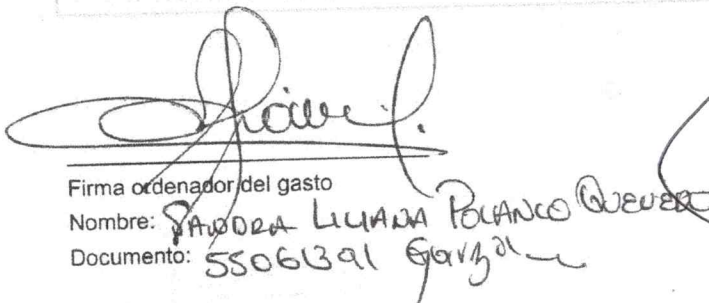 Firma ordenador del gasto
Nombre: SANDRA LILIANA POLANCO QUEVEDO
Documento: 55061391 Garzón